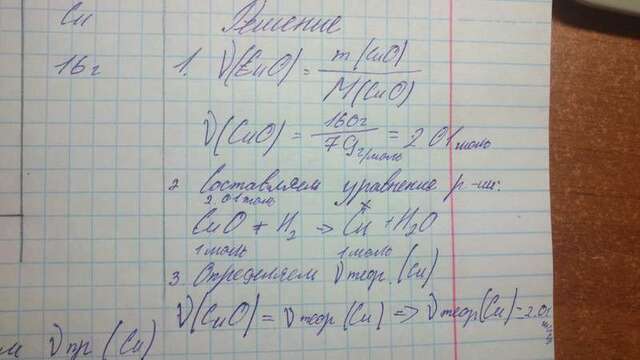 Cu Решение
16 г 1. ν(CuO) = m(CuO) / M(CuO)
ν(CuO) = 160г / 79г/моль = 2.01 моль
2 Составляем уравнение р-ии:
2.01 моль x
CuO + H₂ → Cu + H₂O
1 моль 1 моль
3. Определяем ν теор. (Cu)
ν(CuO) = ν теор (Cu) => ν теор (Cu) = 2.01
ν пр (Cu)